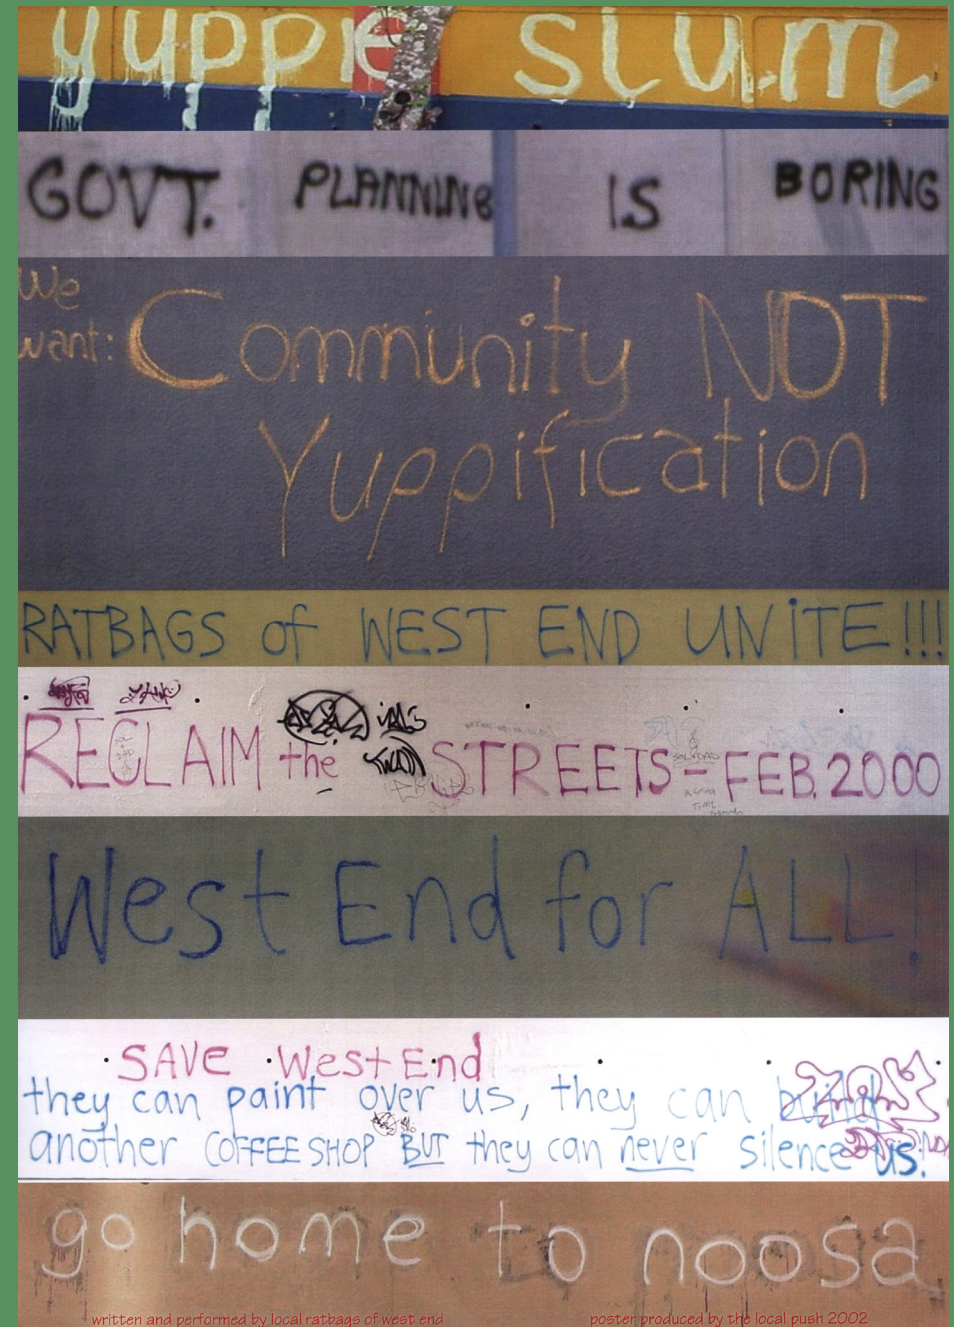 yuppie slum
GOVT. PLANNING IS BORING
We
want: Community NOT
Yuppification
RATBAGS of WEST END UNiTE!!!
RECLAIM the STREETS - FEB. 2000
West End for ALL!
SAVe West End
they can paint over us, they can build
another COFFEE SHOP BUT they can never silence us.
go home to noosa
written and performed by local ratbags of west end
poster produced by the local push 2002